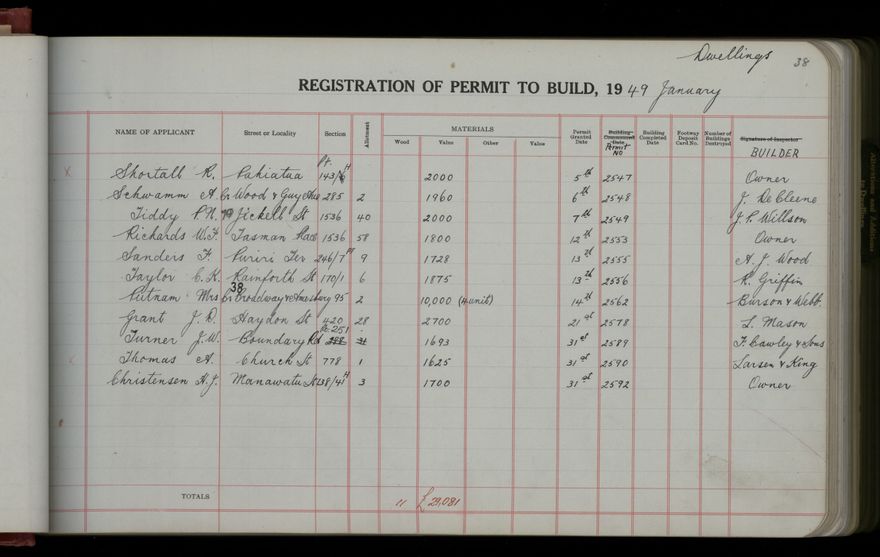 Dwellings 38
REGISTRATION OF PERMIT TO BUILD, 1949 January
NAME OF APPLICANT Street or Locality Section Allotment MATERIALS Wood Value Other Value Permit Granted Date Building Commenced Date Permit No Building Completed Date Footway Deposit Card No. Number of Buildings Destroyed Signature of Inspector BUILDER
x Shortall R. Pahiatua Pt. 143/ H 2000 5th 2547 Owner
Schwamm A. Cr Wood & Guy Ave 285 2 1960 6th 2548 J. De Cleene
Tiddy P.N. 79 Jickell St 1536 40 2000 7th 2549 J. P. Willson
Richards W.F. Tasman Place 1536 58 1800 12th 2553 Owner
Sanders F. Puriri Ter 246/7 Pt 9 1728 13th 2555 A. J. Wood
Taylor C. K. Rainforth St 170/1 6 1875 13th 2556 R. Griffin
Putnam Mrs 38 Cr Broadway & Amesbury 95 2 10,000 (4 unit) 14th 2562 Burson & Webb.
Grant J. D. Haydon St 420 28 2700 21st 2578 L. Mason
Turner J.W. Boundary Rd Pt. 251 288 31 1693 31st 2589 F. Cawley & Sons
x Thomas A. Church St 778 1 1625 31st 2590 Larsen & King
Christensen H.J. Manawatu St 138/41 H 3 1700 31st 2592 Owner
TOTALS 11 £ 29,081
Alterations and Additions to Dwellings